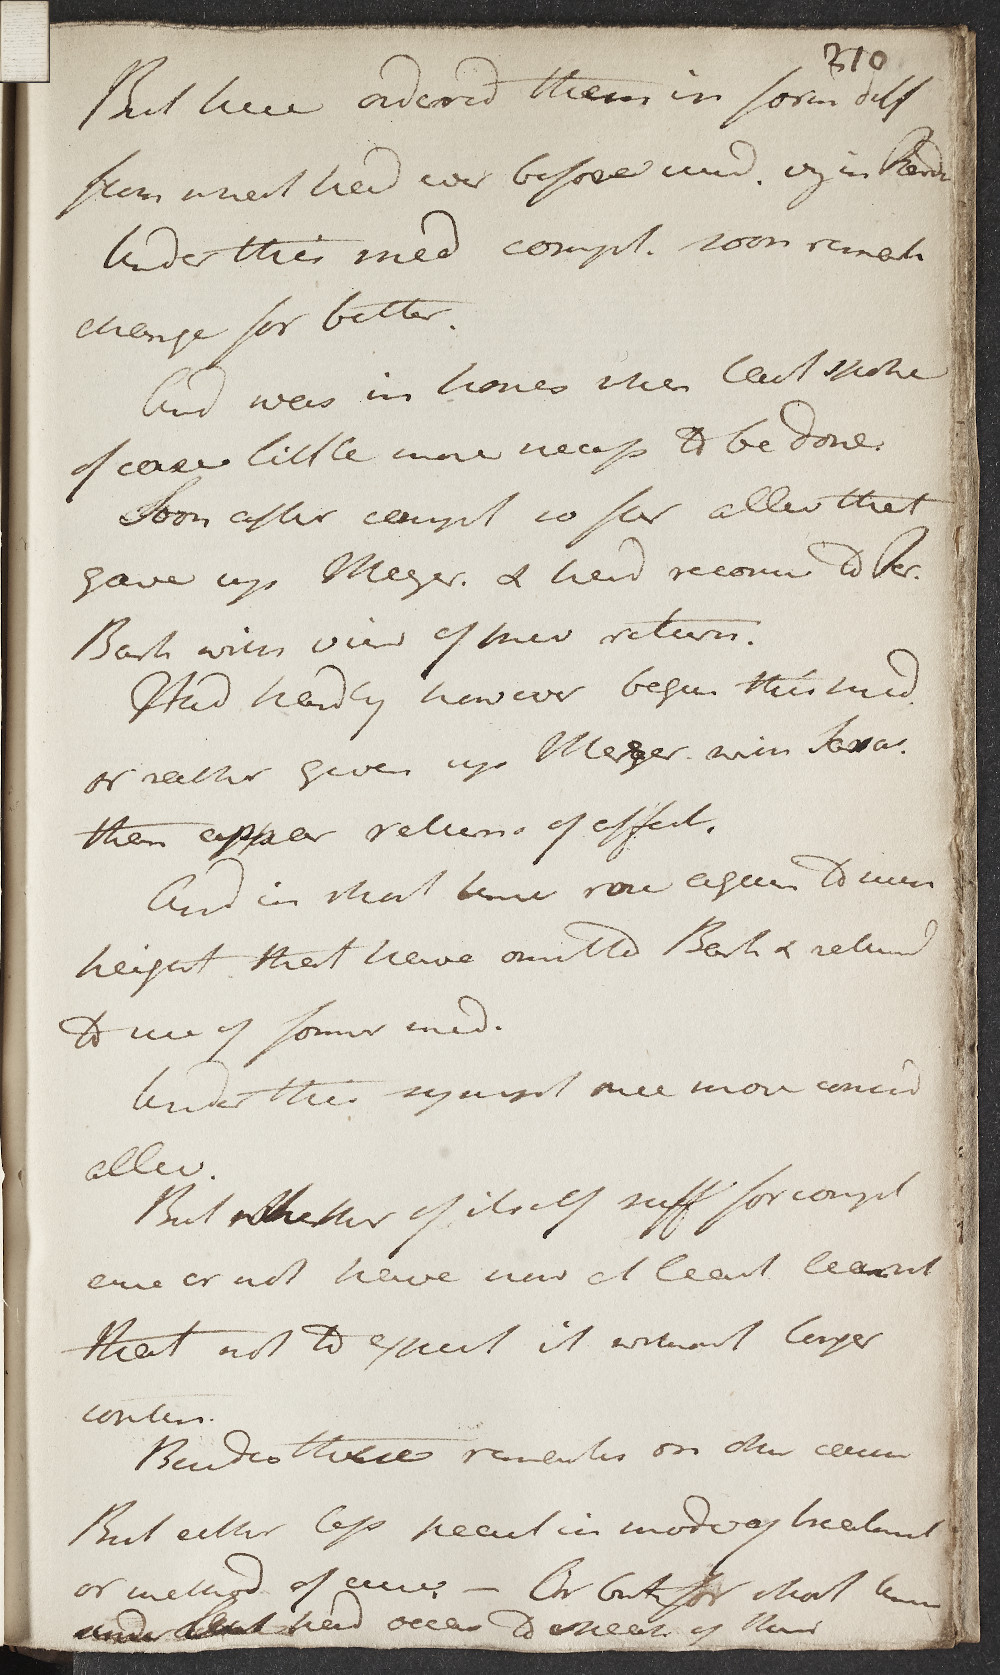 310
But have ordered them in form diff
from what had ever before used. viz in Powdr
Under this med compl. soon remark
change for better.
And was in hopes when last spoke
of case little more necess to be done.
Soon after compl so far allev that
gave up Mezer. & had recour to Per.
Bark with view of prev return.
Had hardly however begun this med.
or rather given up Mezer. with Sarsa.
then appear returns of affect.
And in short time rose again to such
height that have omitted Bark & return'd
to use of former med.
Under this sympt once more consid
allev.
But whether of itself suff for compl
cure or not have now at least learnt
that not to expect it without longer
contin.
Besides these remarks on other cases
But either less necess in mode of treatment
or method of cure. — Or but for short time
under had occas to speak of their